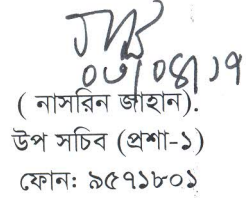 ০৬/০৪/১৭
( নাসরিন জাহান).
উপ সচিব (প্রশা-১)
ফোন: ৯৫৭১৮০১